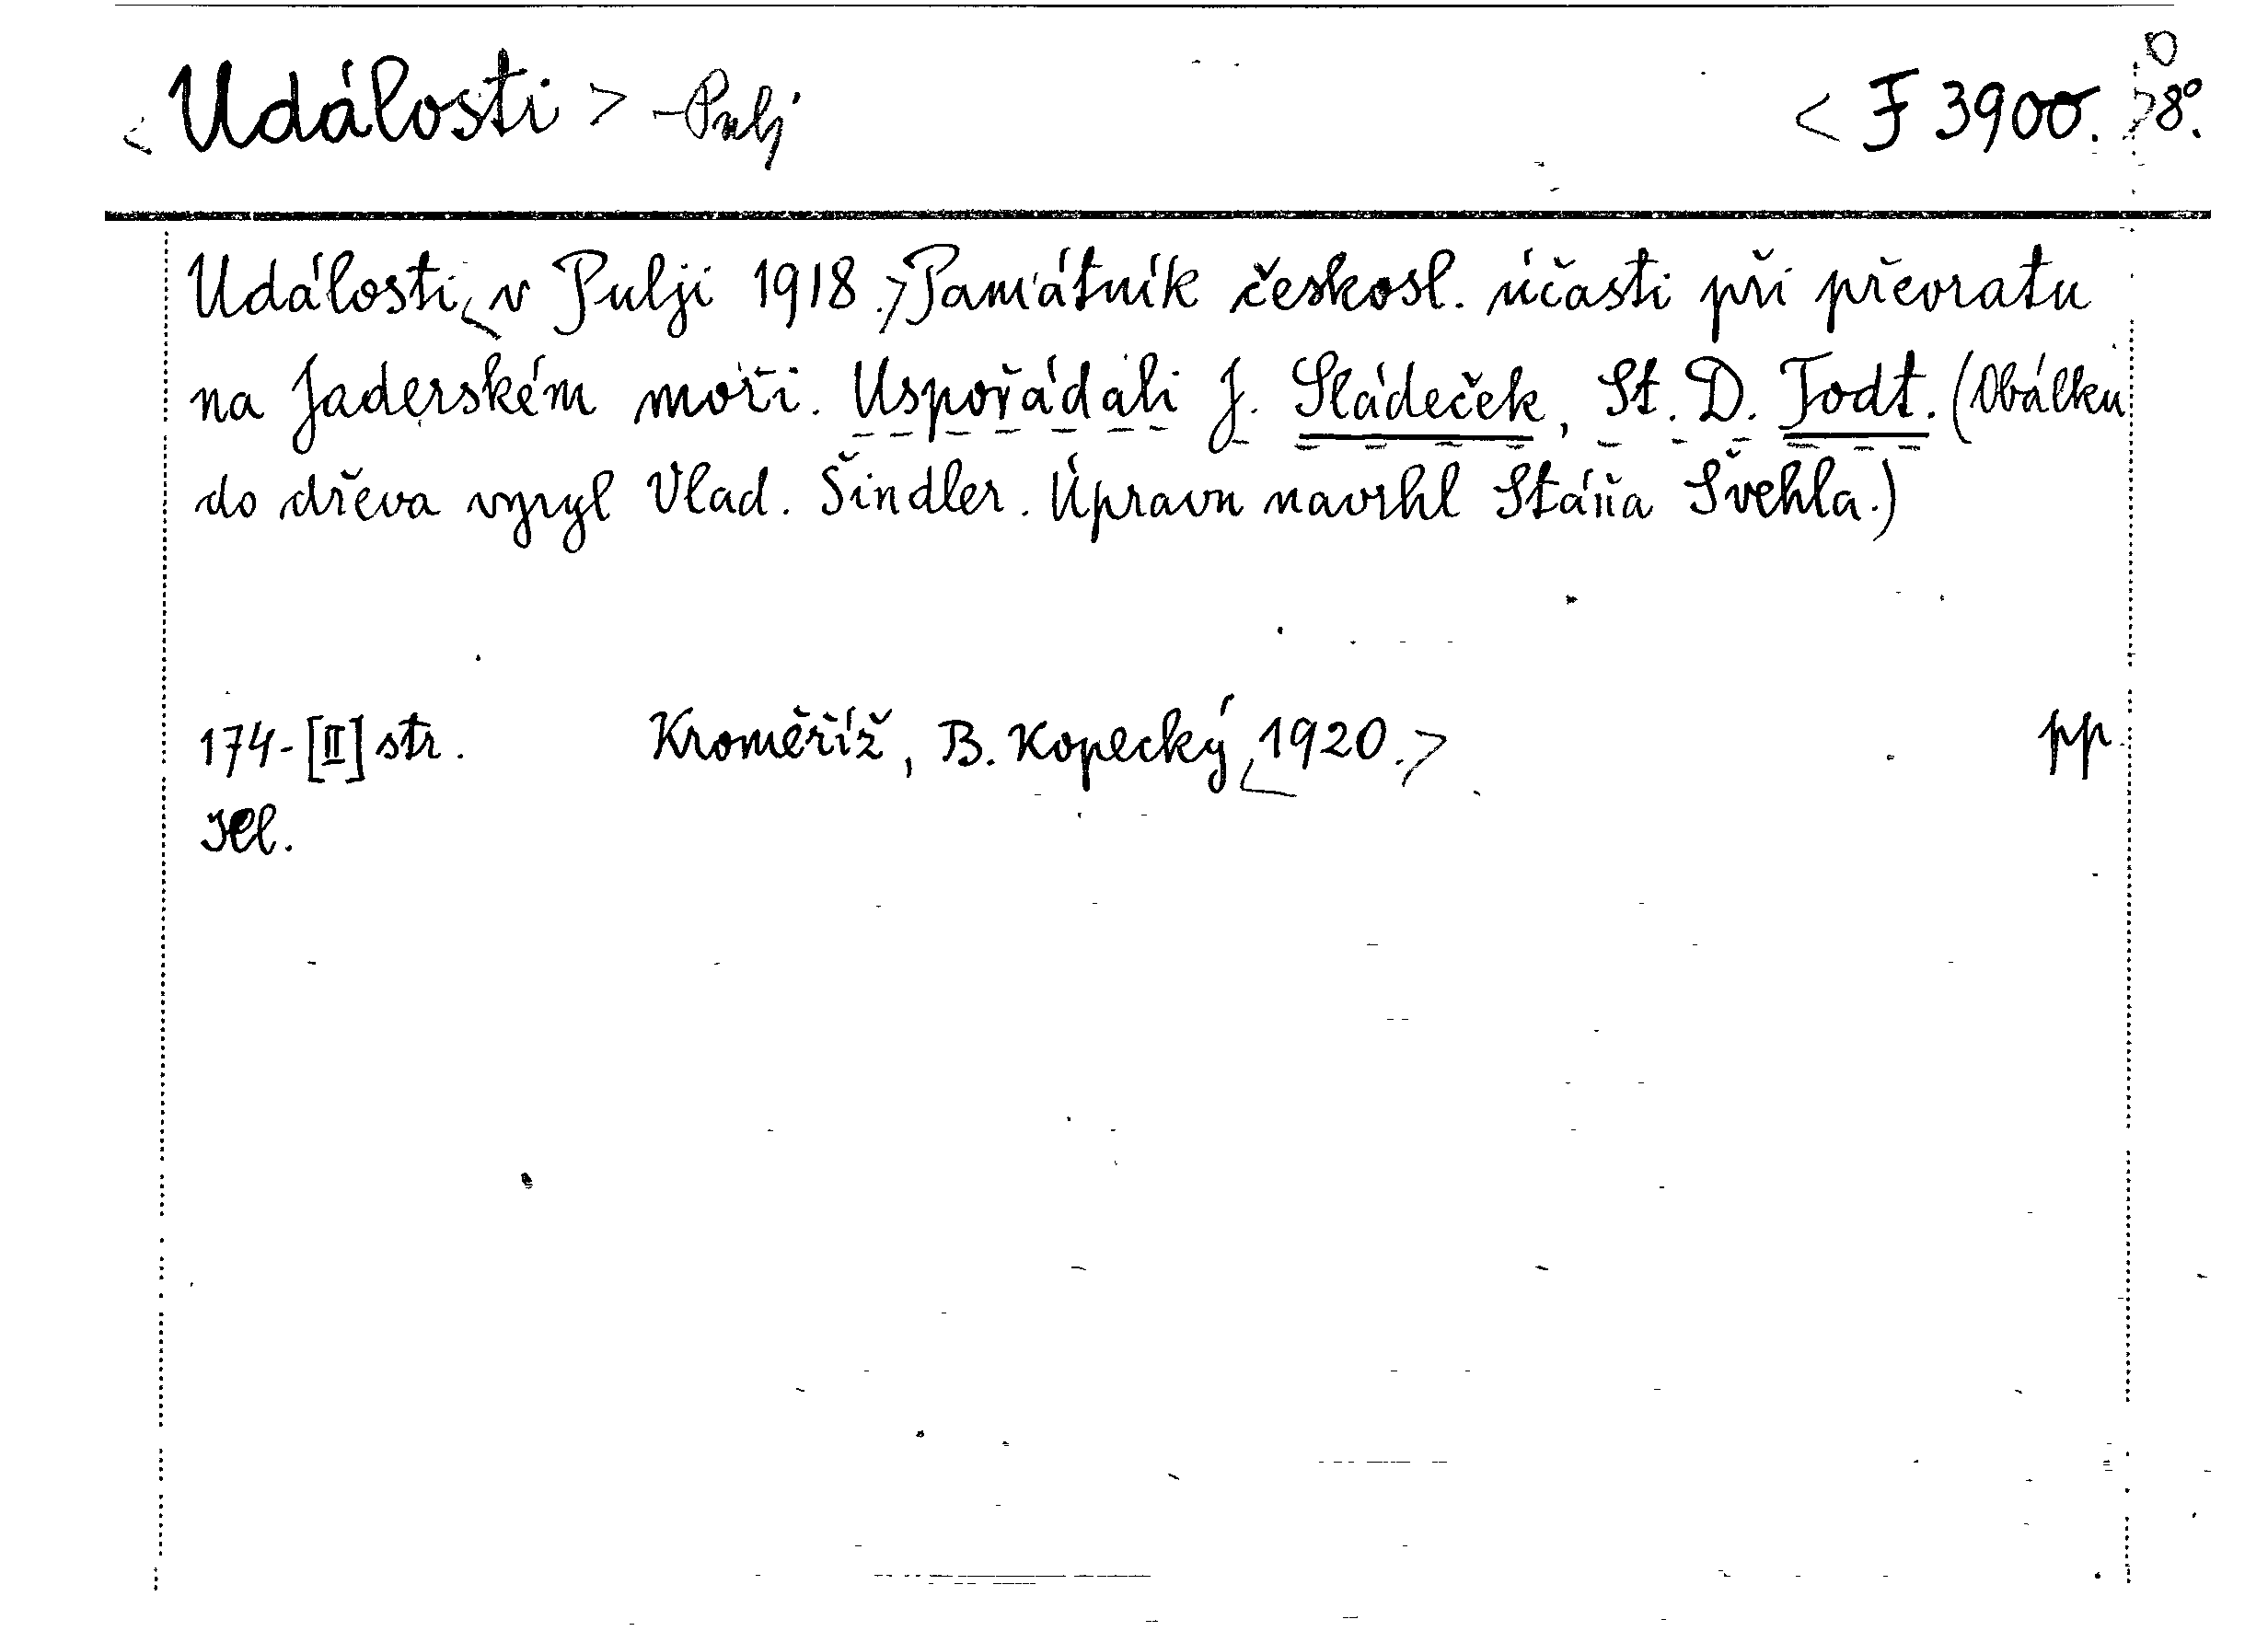 < Události > - Pulj < F 3900. > 8°.
Události < v Pulji 1918. > Památník českosl. účasti při převratu
na Jaderském moři. Uspořádali J. Sládeček, St. D. Todt. (Obálku
do dřeva vyryl Vlad. Šindler. Úpravu navrhl Stáňa Švehla.)
174-[II] str. Kroměříž, B. Kopecký < 1920. > pp.
Il.